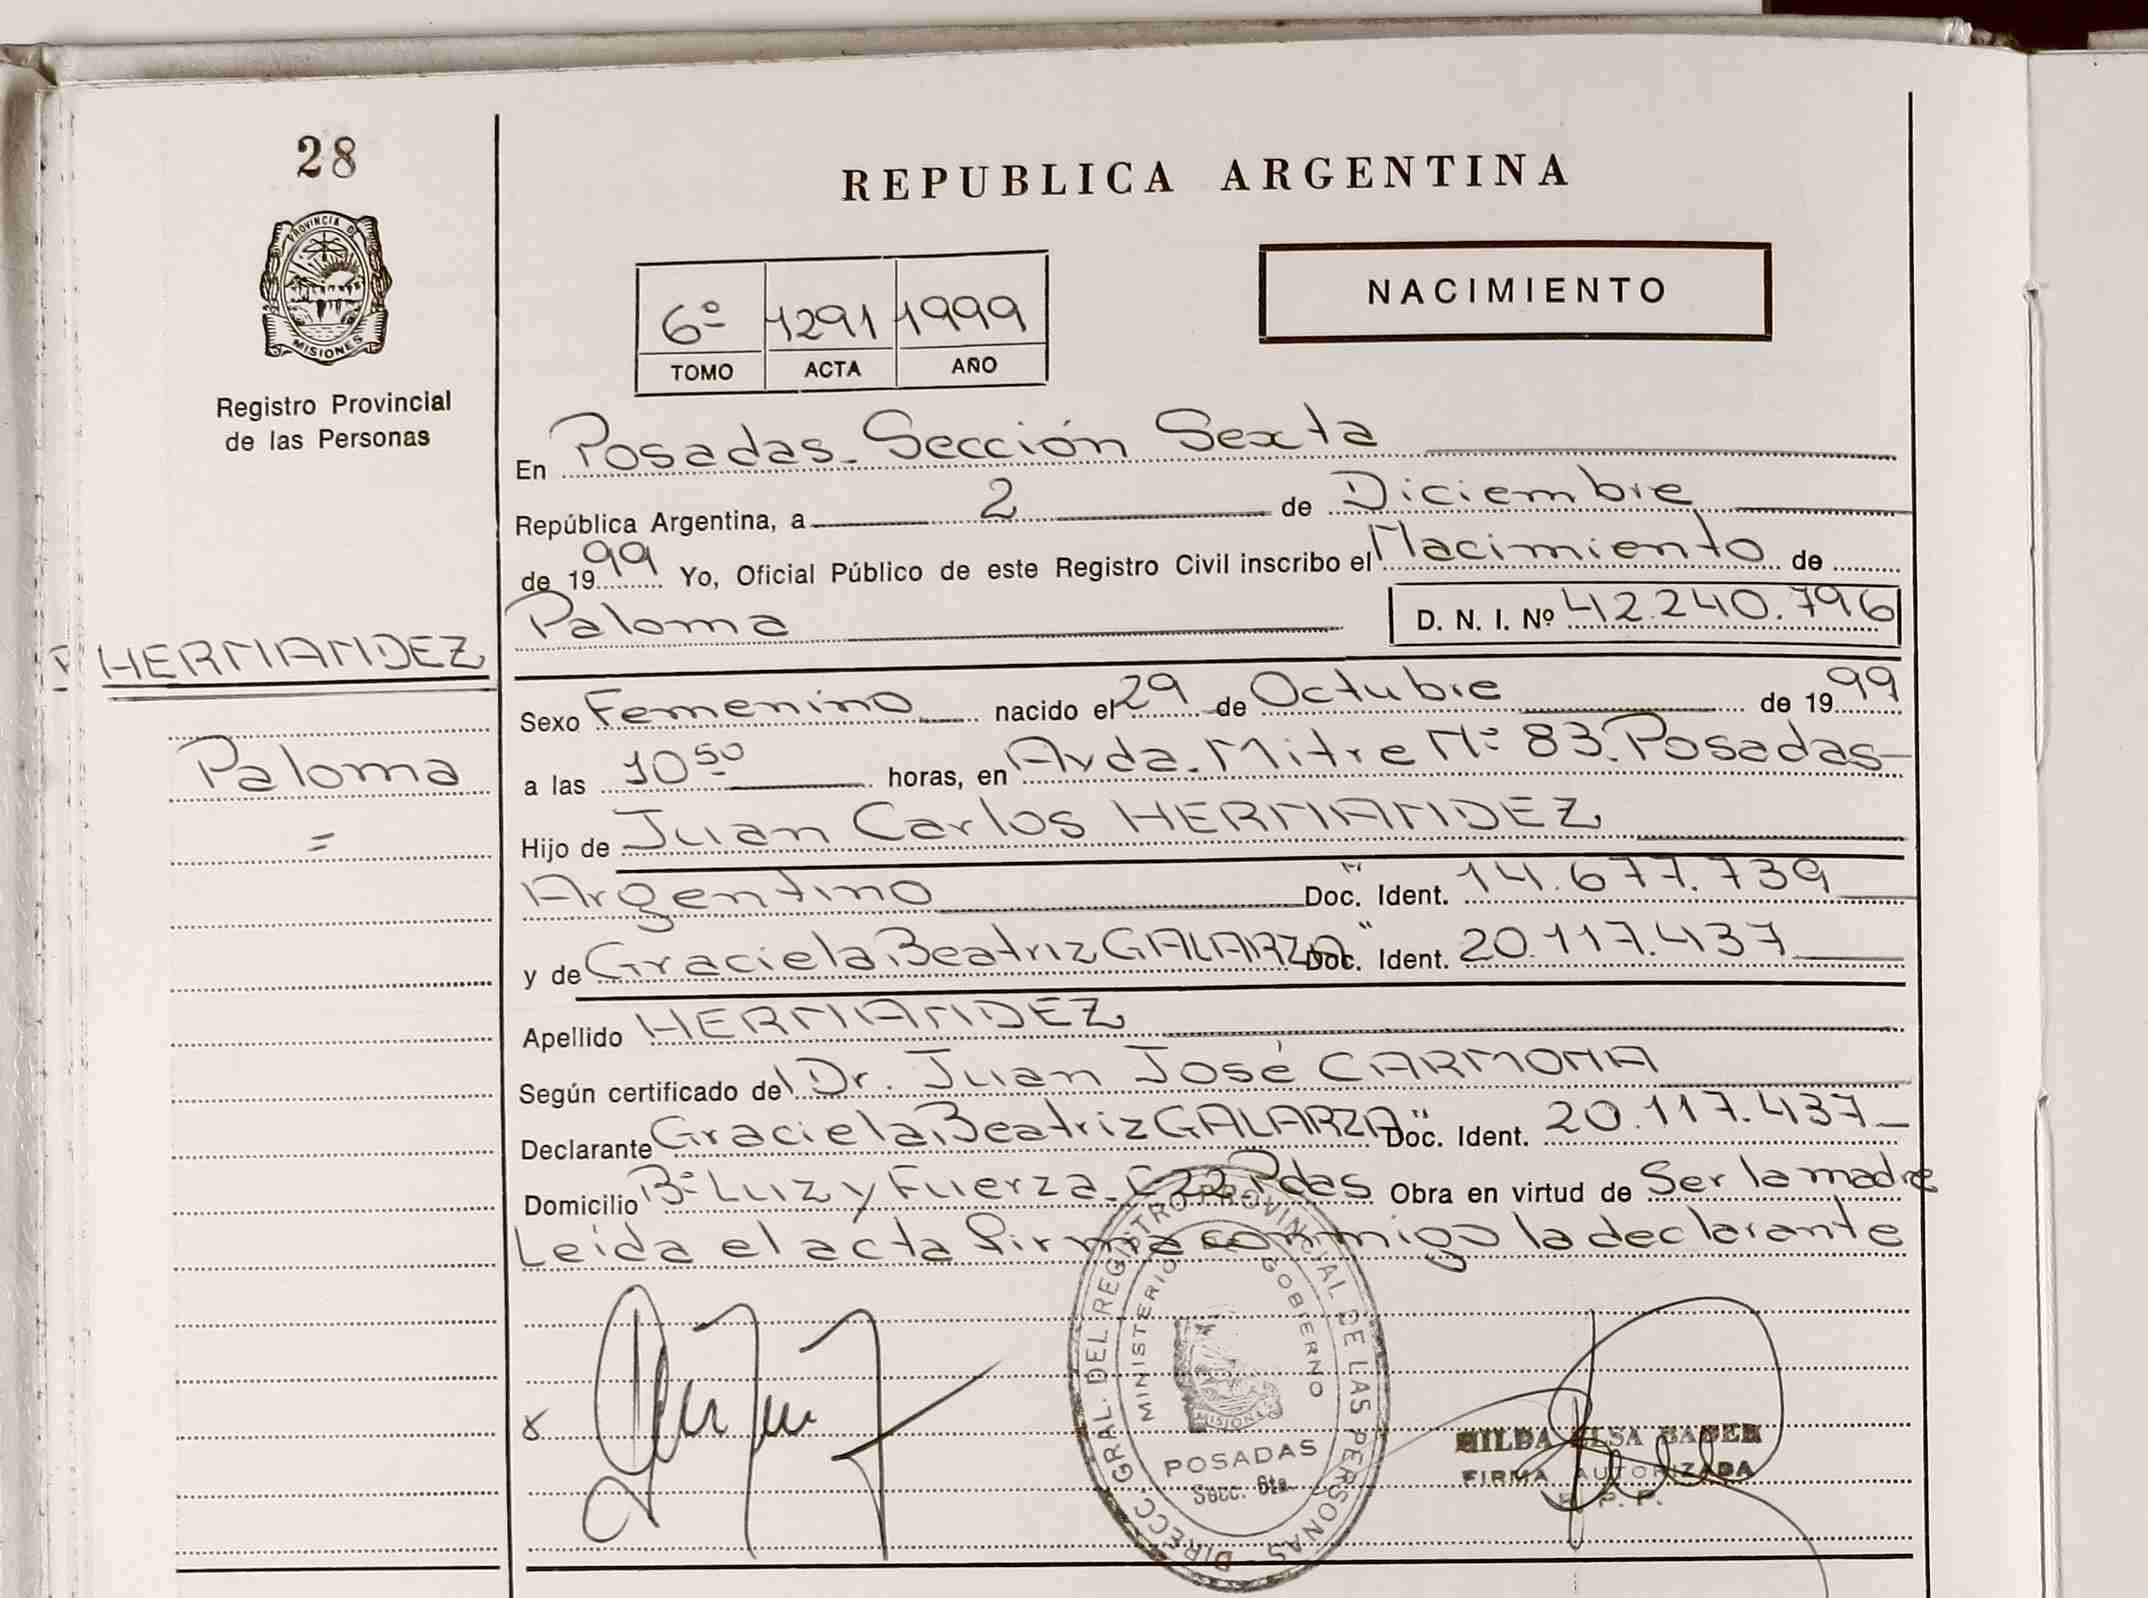 28
PROVINCIA DE
MISIONES
Registro Provincial
de las Personas
HERNANDEZ
Paloma
=
REPUBLICA ARGENTINA
6º 1291 1999
TOMO ACTA AÑO
NACIMIENTO
En Posadas-Sección Sexta
República Argentina, a 2 de Diciembre
de 1999 Yo, Oficial Público de este Registro Civil inscribo el Nacimiento de
Paloma D. N. I. Nº 42.240.796
Sexo Femenino nacido el 29 de Octubre de 1999
a las 10 50 horas, en Avda. Mitre Nº 83. Posadas-
Hijo de Juan Carlos HERNANDEZ
Argentino Doc. Ident. 14.677.739
y de Graciela Beatriz GALARZA Doc. Ident. 20.117.437
Apellido HERNANDEZ
Según certificado del Dr. Juan José CARMONA
Declarante Graciela Beatriz GALARZA Doc. Ident. 20.117.437
Domicilio Bº Luz y Fuerza. C-22 Pdas Obra en virtud de Ser la madre
Leída el acta firma conmigo la declarante
DIRECC. GRAL. DEL REGISTRO PROVINCIAL DE LAS PERSONAS
MINISTERIO GOBIERNO
MISIONES
POSADAS
Secc. 6ta.
HILDA ELSA
FIRMA AUTORIZADA